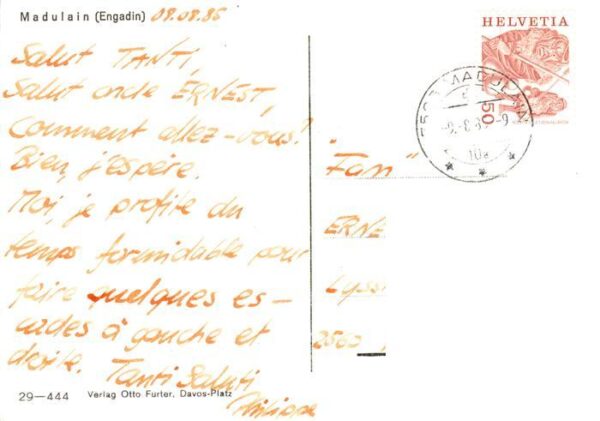 Madulain (Engadin) 09.08.85
Salut TANTI,
Salut oncle ERNEST,
Comment allez-vous?
Bien, j'espère.
Moi, je profite du
temps formidable pour
faire quelques es-
cades à gauche et
droite. Tanti Saluti
Philippe
29—444 Verlag Otto Furter, Davos-Platz
HELVETIA
50
MADULAIN
"Fam"
ERNE
Lyss
2560